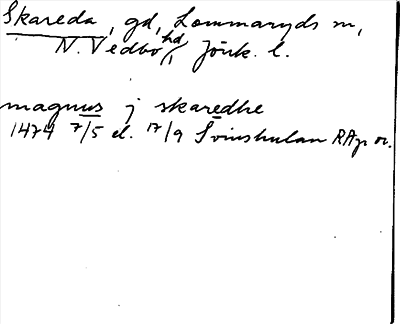 Skareda, gd, Lommaryds sn,
N. Vedbo hd, Jönk. l.
magnus j skaredhe
1474 7/5 el. 17/9 Svinhulan RAp or.